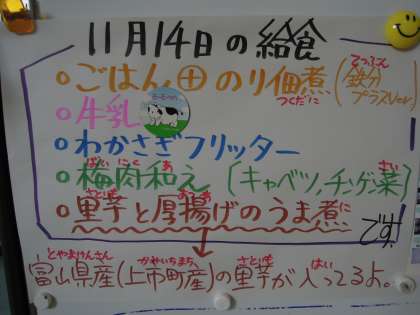 11月14日の給食
ごはん⊕のり佃煮(鉄分
つくだに
てつぶん
プラスVer)
牛乳
わかさぎフリッター
ばいにく あ さい
梅肉和え (キャベツ,チンゲン菜)
さといも あつあ に
里芋と厚揚げのうま煮
です!
とやまけんさん かみいちまち さといも はい
富山県産(上市町産)の里芋が入ってるよ。